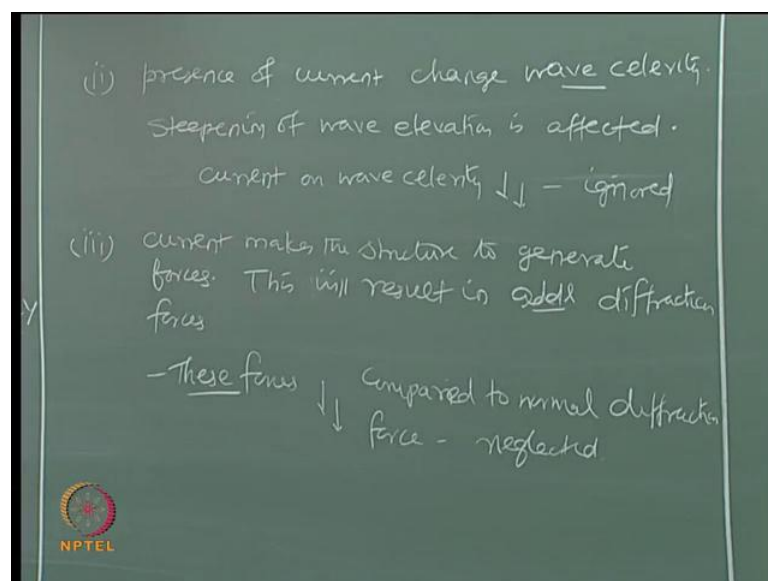 (ii) presence of current change wave celerity.
Steepening of wave elevation is affected.
current on wave celerity ↓↓ - ignored
(iii) current makes the structure to generate
forces. This will result in addl diffraction
forces
- These forces ↓↓ compared to normal diffraction
force - neglected.
y
NPTEL